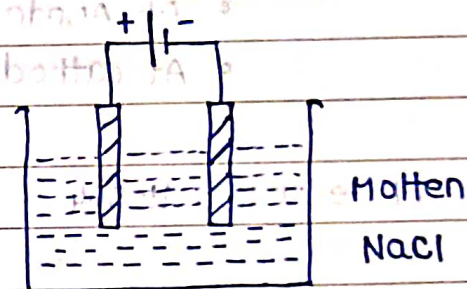 + -
Molten
NaCl